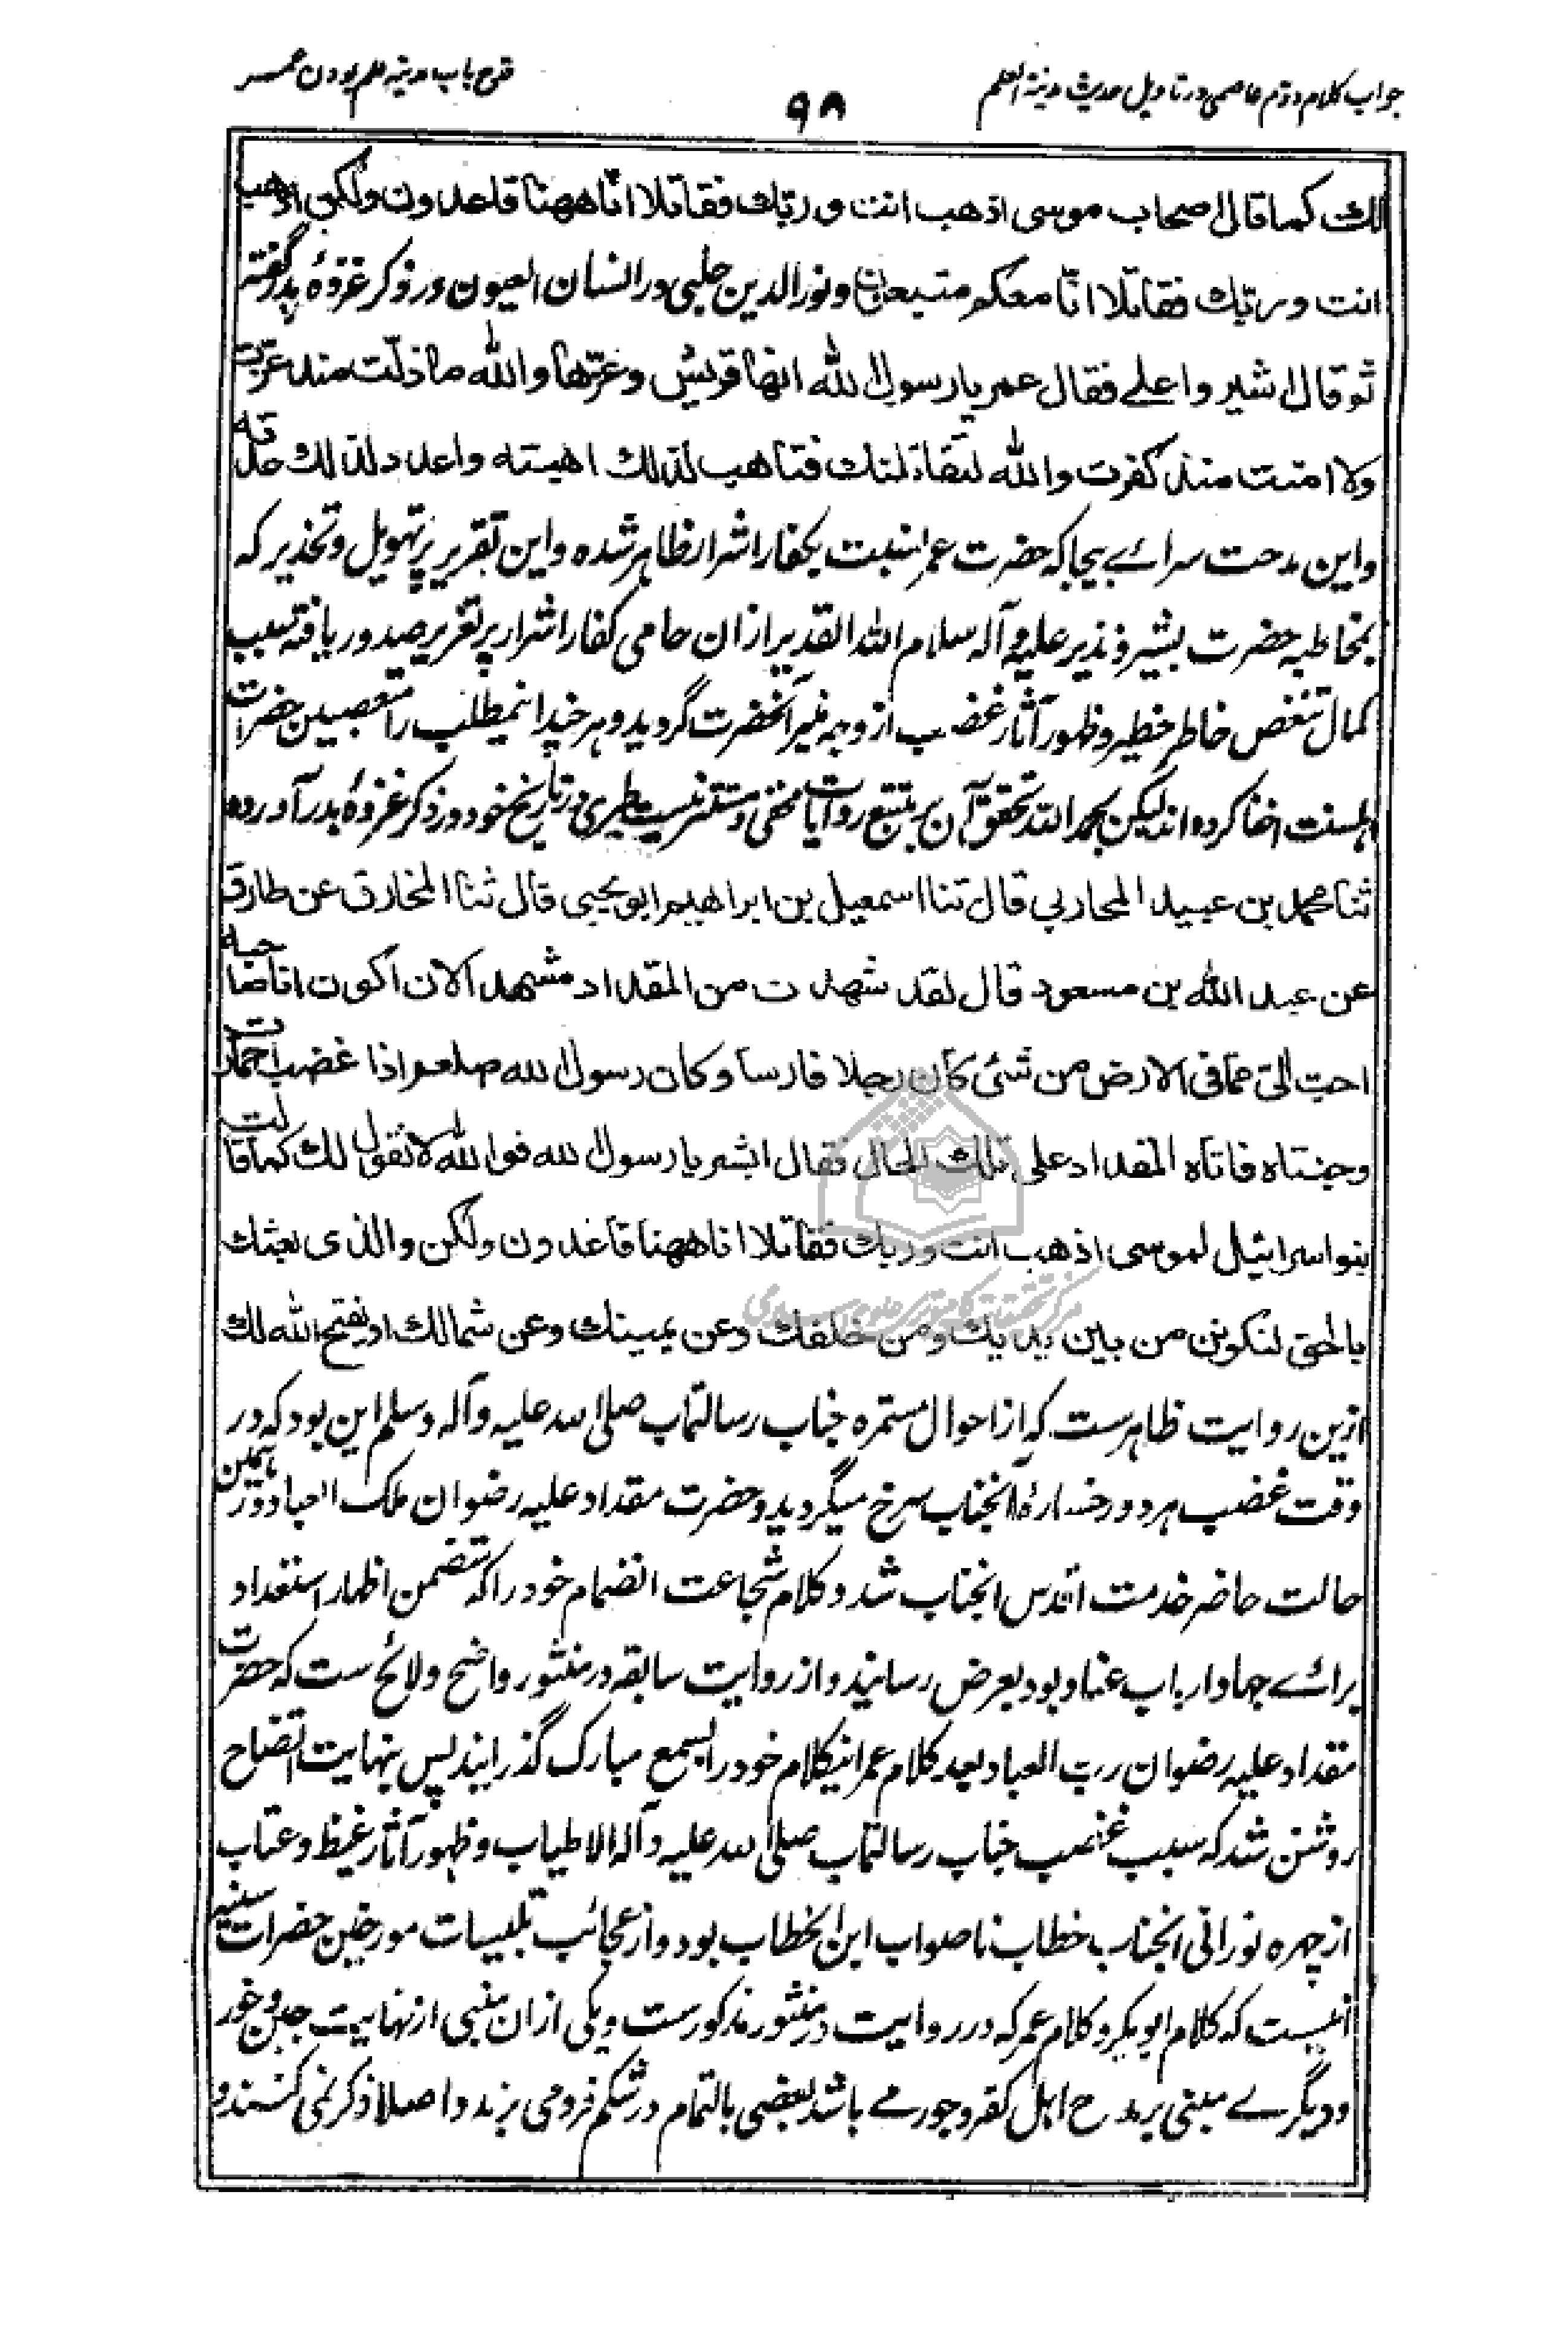 جواب کلام دوم عاصمی در تاویل حدیث مدینة العلم
۹۸
قدح باب مدینه علم بودن عمر
لك كما قال اصحاب موسى اذهب انت وربك فقاتلا انا ههنا قاعدون ولكن اذهب
انت وربك فقاتلا انا معكم متبعون ونور الدین حلبی در انسان العیون در ذکر غزوهٔ بدر گفته
ثم قال اشيروا علي فقال عمر يا رسول الله انها قريش وعزتها والله ما ذلت منذ عزت
ولا امنت منذ كفرت والله لتقاتلنك فتاهب لذلك اهبته واعدد لذلك عدته
واین مدحت سرائے بیجا که حضرت عمر نسبت بکفار اشرار ظاهر شده واین تقریر پر تهویل و تحذیر که
بمخاطبه حضرت بشیر و نذیر علیه و آله سلام الله القدیر ازان حامی کفار اشرار پر تغریر صدور یافته سبب
کمال تنغص خاطر خطیر و ظهور آثار غضب از وجه منیر آنحضرت گردید و هر چند اینمطلب را متعصبین حضرات
اهلسنت اخفا کرده اند لیکن بحمد الله تحقق آن بر متتبع روایات مخفی و مستتر نیست طبری در تاریخ خود در ذکر غزوهٔ بدر آورده
ثنا محمد بن عبيد المحاربي قال ثنا اسمعيل بن ابراهيم ابو يحيى قال ثنا المخارق عن طارق
عن عبد الله بن مسعود قال لقد شهدت من المقداد مشهد الان اكون انا صاحبه
احب الي مما في الارض من شئ كان رجلا فارسا وكان رسول الله صلعم اذا غضب احمارت
وجنتاه فاتاه المقداد على تلك الحال فقال ابشر يا رسول الله فوالله لا نقول لك كما قالت
بنو اسرائيل لموسى اذهب انت وربك فقاتلا انا ههنا قاعدون ولكن والذي بعثك
بالحق لنكونن من بين يديك ومن خلفك وعن يمينك وعن شمالك او يفتح الله لك
ازین روایت ظاهرست که از احوال مستمره جناب رسالتمآب صلی الله علیه و آله وسلم این بود که در
وقت غضب هر دو رخسارهٔ آنجناب سرخ میگردید و حضرت مقداد علیه رضوان ملک العباد در همین
حالت حاضر خدمت اقدس انجناب شد و کلام شجاعت انضمام خود را که متضمن اظهار استعداد
برائے جهاد ارباب عناد بود بعرض رسانید و از روایت سابقه در منثور واضح و لائح ست که حضرت
مقداد علیه رضوان رب العباد بعد کلام عمر اینکلام خود را بسمع مبارک گذرانید پس بنهایت اتضاح
روشن شد که سبب غضب جناب رسالتمآب صلی الله علیه و آله الاطیاب و ظهور آثار غیظ و عتاب
از چهره نورانی انجناب خطاب ناصواب ابن الخطاب بود و از عجائب تلبیسات مورخین حضرات سنیه
آنست که کلام ابوبکر و کلام عمر که در روایت در منثور مذکورست و یکی ازان منبی از نهایت جبن و خور
و دیگرے مبنی بر مدح اهل کفر و جور مے باشد بعضی بالتمام در شکم فرو می برند و اصلا ذکر نمی کنند و